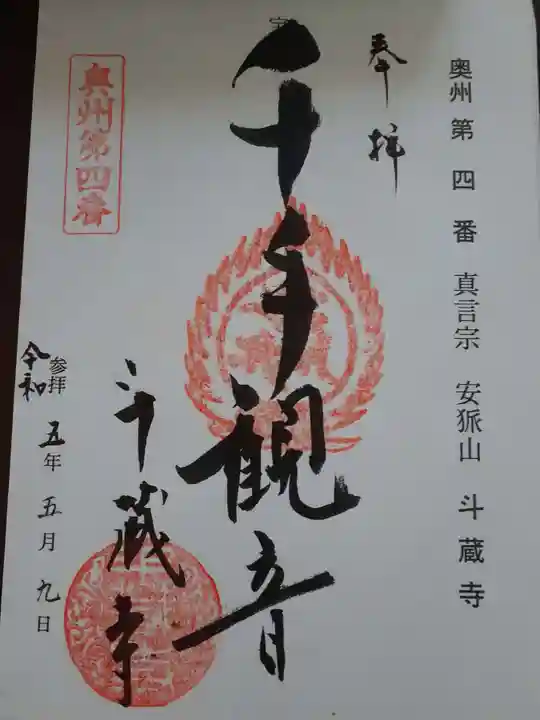 奥州第四番 真言宗 安狐山 斗蔵寺
奉拝
千手観音
斗蔵寺
奥州第四番
令和
参拝 五年五月九日